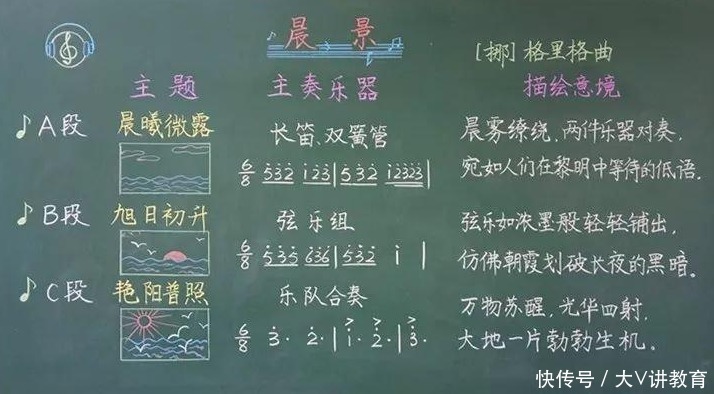 晨景
[挪]格里格曲
主题 主奏乐器 描绘意境
A段 晨曦微露 长笛、双簧管 晨雾缭绕，两件乐器对奏，
6/8 532 123 | 532 12323 | 宛如人们在黎明中等待的低语。
B段 旭日初升 弦乐组 弦乐如浓墨般轻轻铺出，
6/8 535 636 | 532 1 | 仿佛朝霞划破长夜的黑暗。
C段 艳阳普照 乐队合奏 万物苏醒，光华四射，
6/8 3· 2· | 1· 2· | 3· 大地一片勃勃生机。
快传号 / 大V讲教育